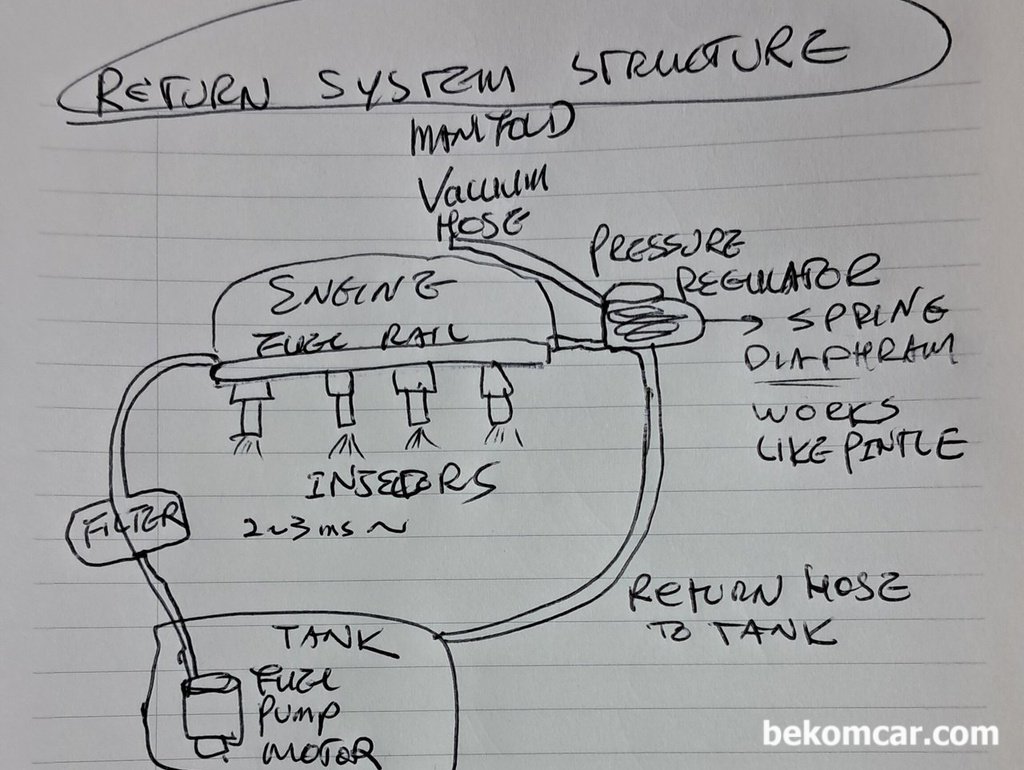 RETURN SYSTEM STRUCTURE
MANIFOLD
VACUUM
HOSE
PRESSURE
REGULATOR
ENGINE
FUEL RAIL
→ SPRING
DIAPHRAM
WORKS
LIKE PINTLE
INJECTORS
2~3 ms ~
FILTER
RETURN HOSE
TO TANK
TANK
FUEL
PUMP
MOTOR
bekomcar.com